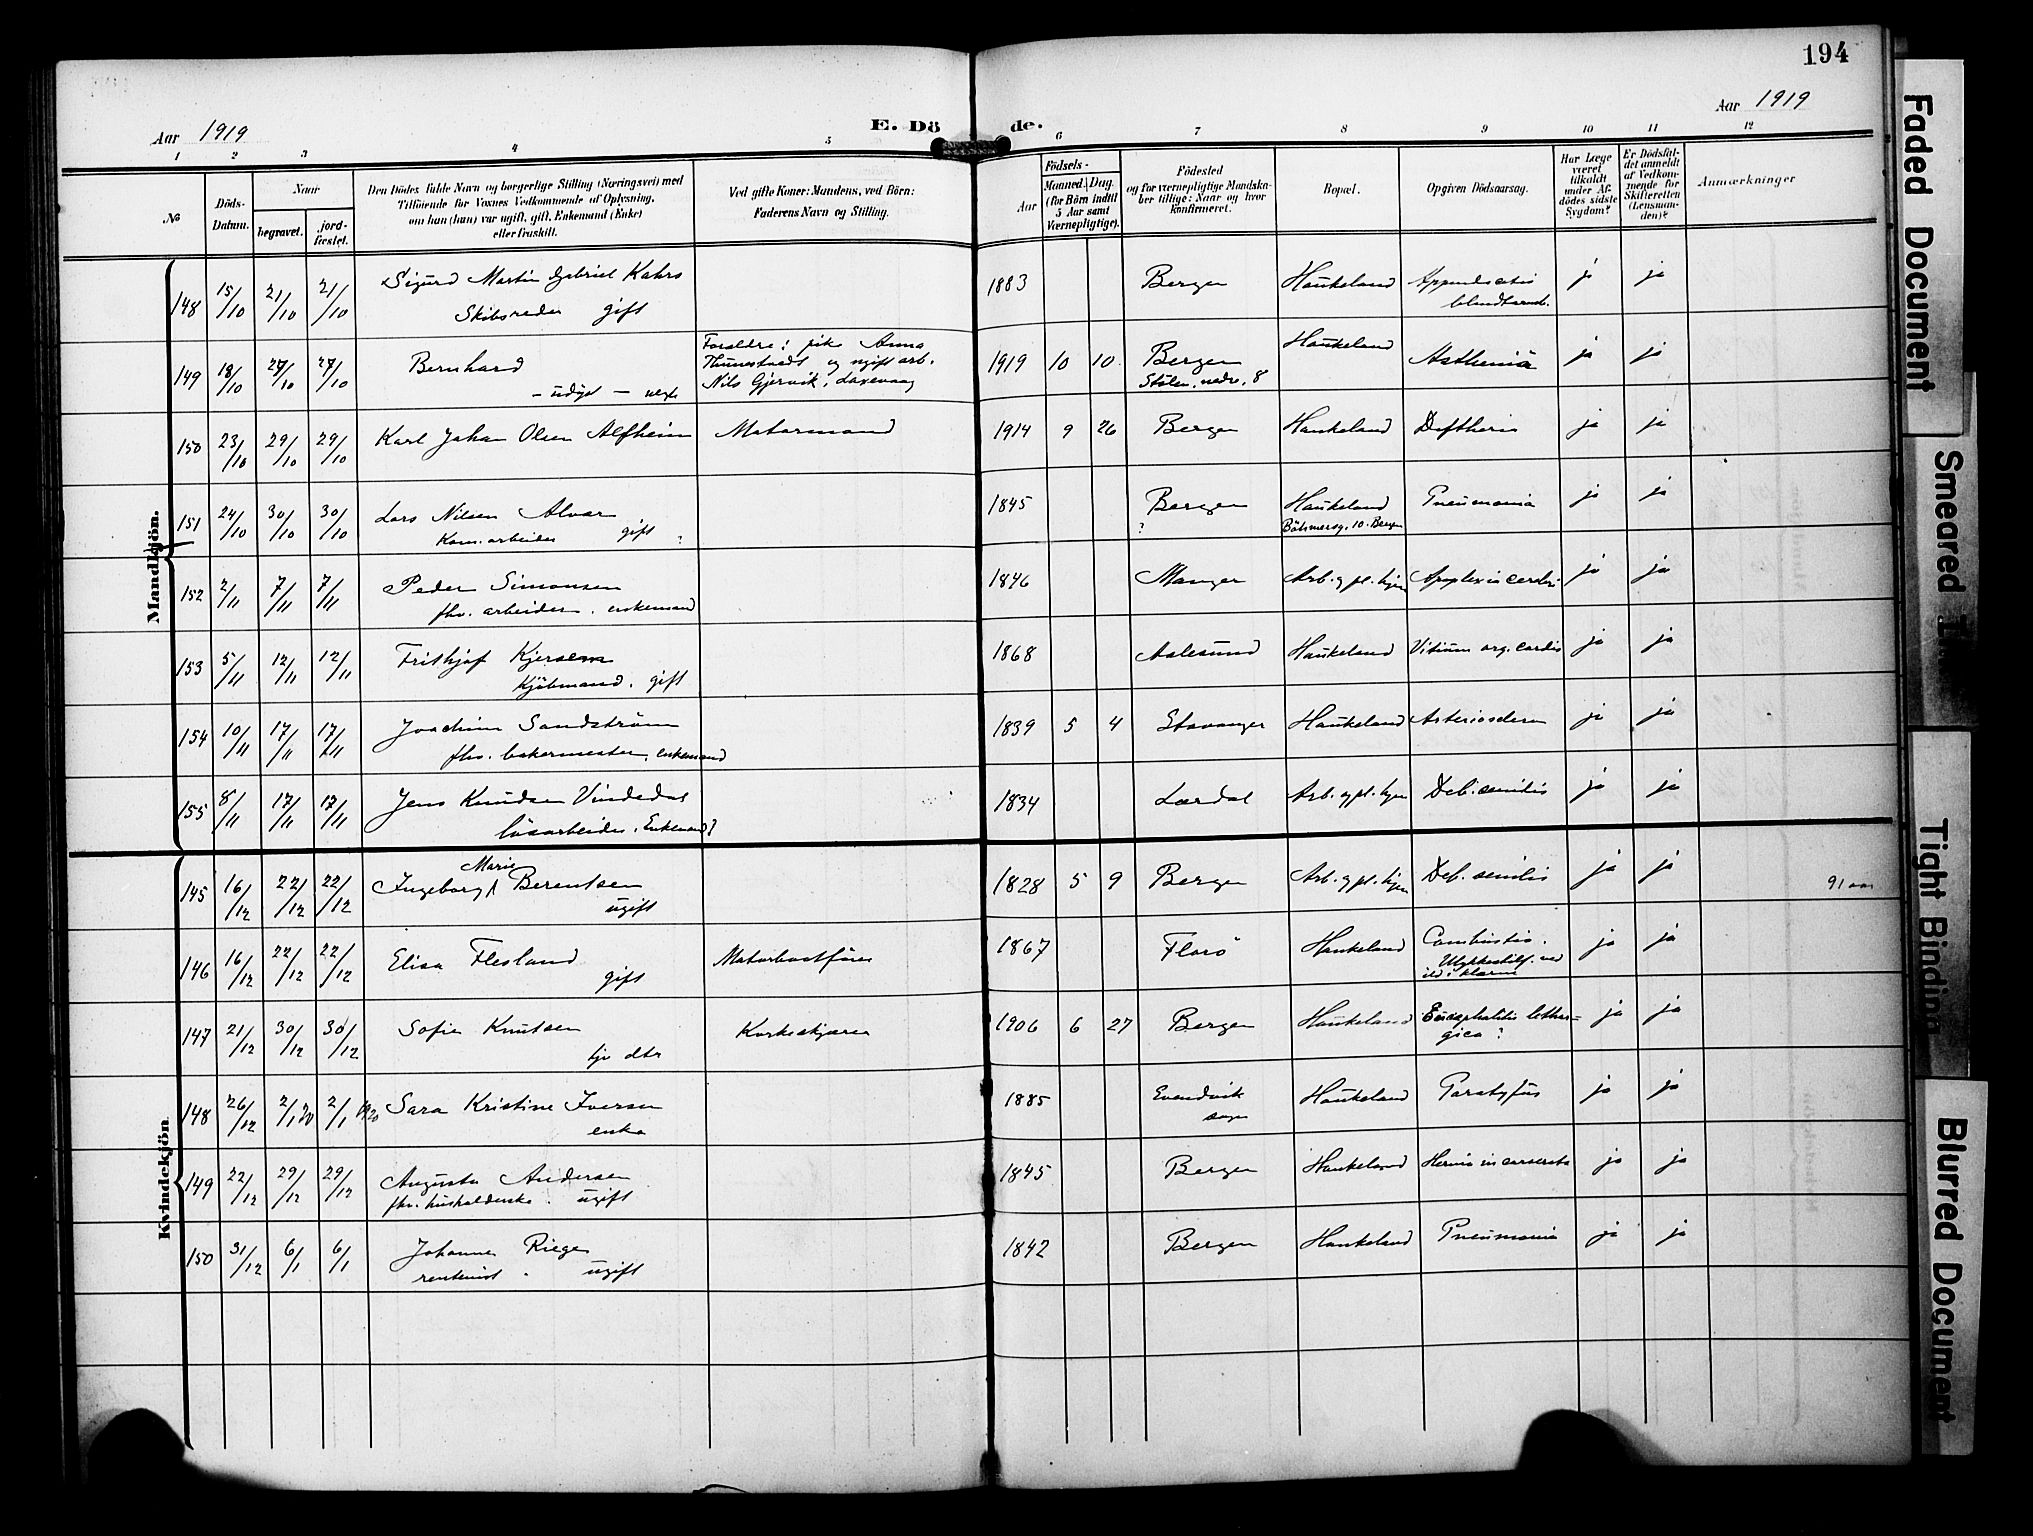 194
Aar 1919
E. Dö de.
Aar 1919
1 2 3 4 5 6 7 8 9 10 11 12
№
Döds-
Datum.
Naar
begravet.
jord-
fæstet.
Den Dödes fulde Navn og borgerlige Stilling (Næringsvei) med
Tilföiende for Voxnes Vedkommende af Oplysning,
om han (hun) var ugift, gift, Enkemand (Enke)
eller fraskilt.
Ved gifte Koner: Mandens, ved Börn:
Faderens Navn og Stilling.
Födsels-
Aar
Maaned. Dag.
(for Börn indtil
5 Aar samt
Værnepligtige).
Födested
og for værnepligtige Mandska-
ber tillige: Naar og hvor
konfirmeret.
Bopæl.
Opgiven Dödsaarsag.
Har Læge
været
tilkaldt
under Af-
dödes sidste
Sygdom?
Er Dödsfal-
det anmeldt
af Vedkom-
mende for
Skifteretten
(Lensman-
den)?
Anmærkninger
Mandkjön.
148 15/10 21/10 21/10 Sigurd Martin Gabriel Kahrs 1883 Bergen Haukeland Appendicitis ja ja
Skibsreder gift blindtarmb.
149 18/10 27/10 27/10 Bernhard
- udøpt - uegte
Forældre: pike Anna
og ugift arb.
Nils Gjervik, Laxevaag
1919 10 10 Bergen Haukeland Asthenia ja ja
Stølen, nedr. 8
150 23/10 29/10 29/10 Karl Johan Olsen Alfheim Matarmand 1914 9 26 Bergen Haukeland Diftheri ja ja
151 24/10 30/10 30/10 Lars Nilsen Alver 1845 Bergen Haukeland Pneumonia ja ja
Kom. arbeider gift ? ? Böhmersg. 10. Bergen
152 2/11 7/11 7/11 Peder Simonsen 1846 Manger Arb. g pl. hjem Apoplexia cerebri ja ja
fhv. arbeider. enkemand
153 5/11 12/11 12/11 Frithjof Kjersem 1868 Aalesund Haukeland Vitium org. cordis ja ja
Kjöbmand. gift
154 10/11 17/11 17/11 Joachim Sandstrøm 1839 5 4 Stavanger Haukeland Arterioscleros ja ja
fhv. bakermester, enkemand
155 8/11 17/11 17/11 Jens Knudsen Vindedal 1834 Lærdal Arb. g pl. hjem Deb. senilis ja ja
løsarbeider. Enkemand?
Kvindekjön.
145 16/12 22/12 22/12 Ingeborg Marie Berentsen 1828 5 9 Bergen Arb. g pl. hjem Deb. senilis ja ja 91 aar
ugift
146 16/12 22/12 22/12 Elisa Flesland Matorbaatfører 1867 Florö Haukeland Combustio. ja ja
gift Ulykkestilf. ved
ild i klærne
147 21/12 30/12 30/12 Sofie Knutsen Korkskjærer 1906 6 27 Bergen Haukeland Encephalitis lethar- ja ja
hjv dtr gica?
148 26/12 2/1 20 2/1 1920 Sara Kristine Iversen 1885 Evendvik Haukeland Paratyfus ja ja
enke sogn
149 22/12 29/12 29/12 Augusta Andersen 1845 Bergen Haukeland Hernia incarserata ja ja
fhv. husholderske. ugift
150 31/12 6/1 6/1 Johanne Rieger 1842 Bergen Haukeland Pneumonia ja ja
rentenist. ugift
Faded Document
Smeared
Tight Binding
Blurred Document